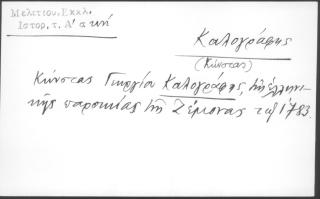 Μελετίου, Εκκλ.
Ιστορ, τ. Α' σ κή
Καλογράφης
(Κώνστας)
Κώνστας Γεωργίου Καλογράφης, τῆς ἑλληνι-
κῆς παροικίας τῆς Ζέμονας τοῦ 1783.